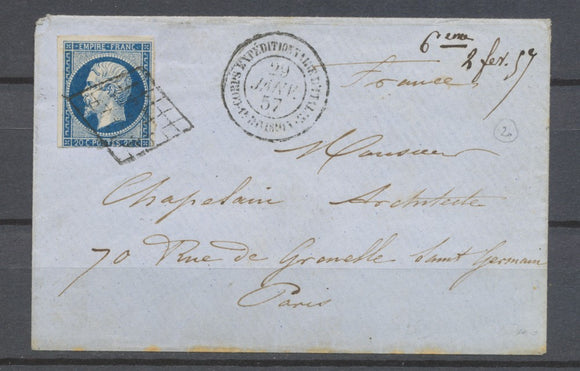 EMPIRE FRANC
20 C POSTES 20 C
CORPS EXPEDITIONAIRE D'ITALIE
1E DIVISION
29
JANV.
57
6eme
2 fev. 57
France
Monsieur
Chapelain Architecte
70 Rue de Grenelle Saint Germain
Paris
20